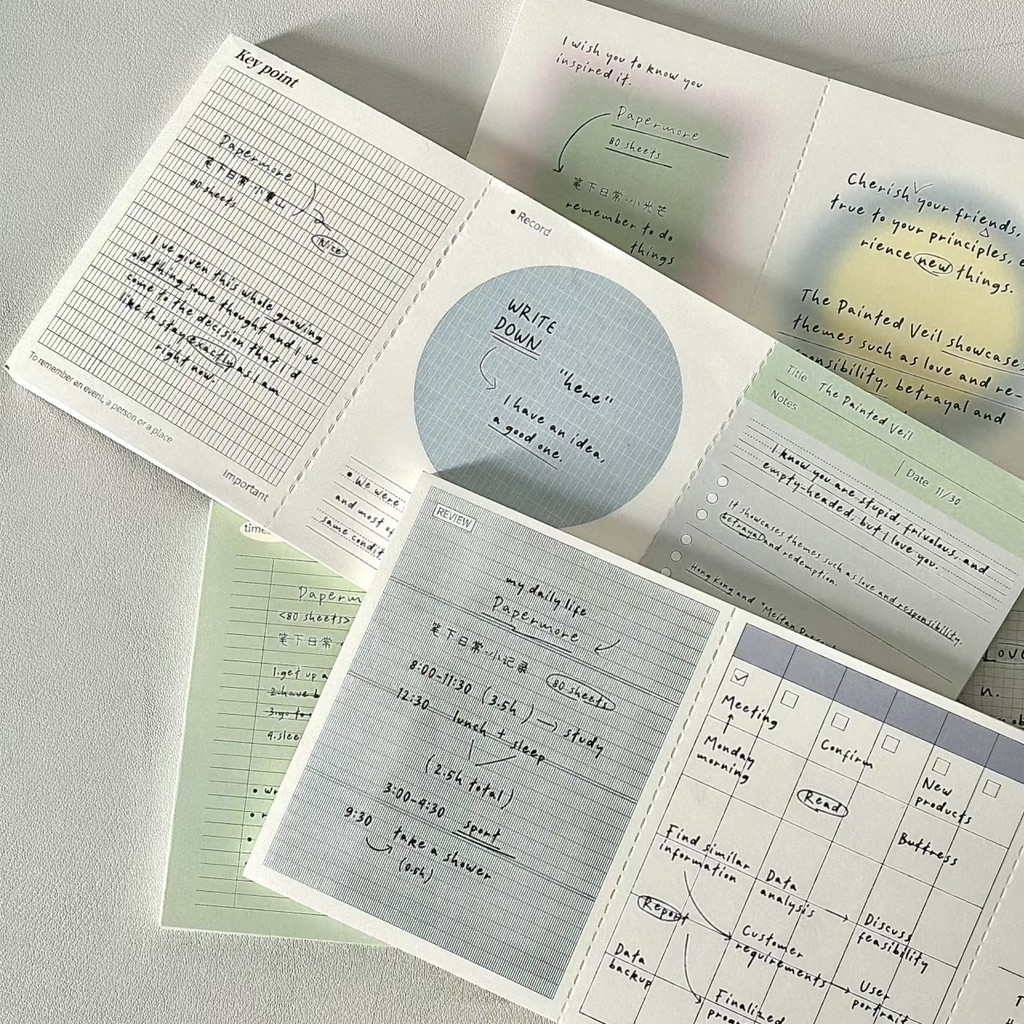 Key point
Papermore
笔下日常·小重山
80 sheets
Nice
I've given this whole growing
old thing some thought and i've
come to the decision that I'd
like to stay exactly as I am
right now.
To remember an event, a person or a place
Important
• Record
WRITE
DOWN
"here"
I have an idea,
a good one.
• We were
and most of
same condit
I wish you to know you
inspired it.
Papermore
80 sheets
笔下日常·小光芒
remember to do
things
Cherish your friends,
true to your principles,
rience new things.
The Painted Veil showcase
themes such as love and re-
onsibility, betrayal and
Title The Painted Veil
Notes
Date 11/30
I know you are stupid, frivolous, and
empty-headed, but I love you.
It showcases themes such as love and responsibility,
betrayal and redemption.
Hong Kong and "Meitan
Love
n.
time
Paperm
<80 sheets>
笔下日常·
1.get up a
2.have b
3.go to
4.slee
REVIEW
my daily life
Papermore
笔下日常·小记录
80 sheets
8:00-11:30 (3.5h) → study
12:30 lunch + sleep
(2.5h total)
3:00-4:30 sport
9:30 take a shower
(0.5h)
Meeting
Monday
morning
Confirm
Read
New
products
Buttress
Find similar
information
Data
analysis
Discuss
feasibility
Report
Customer
requirements
User
portrait
Data
backup
Finalized